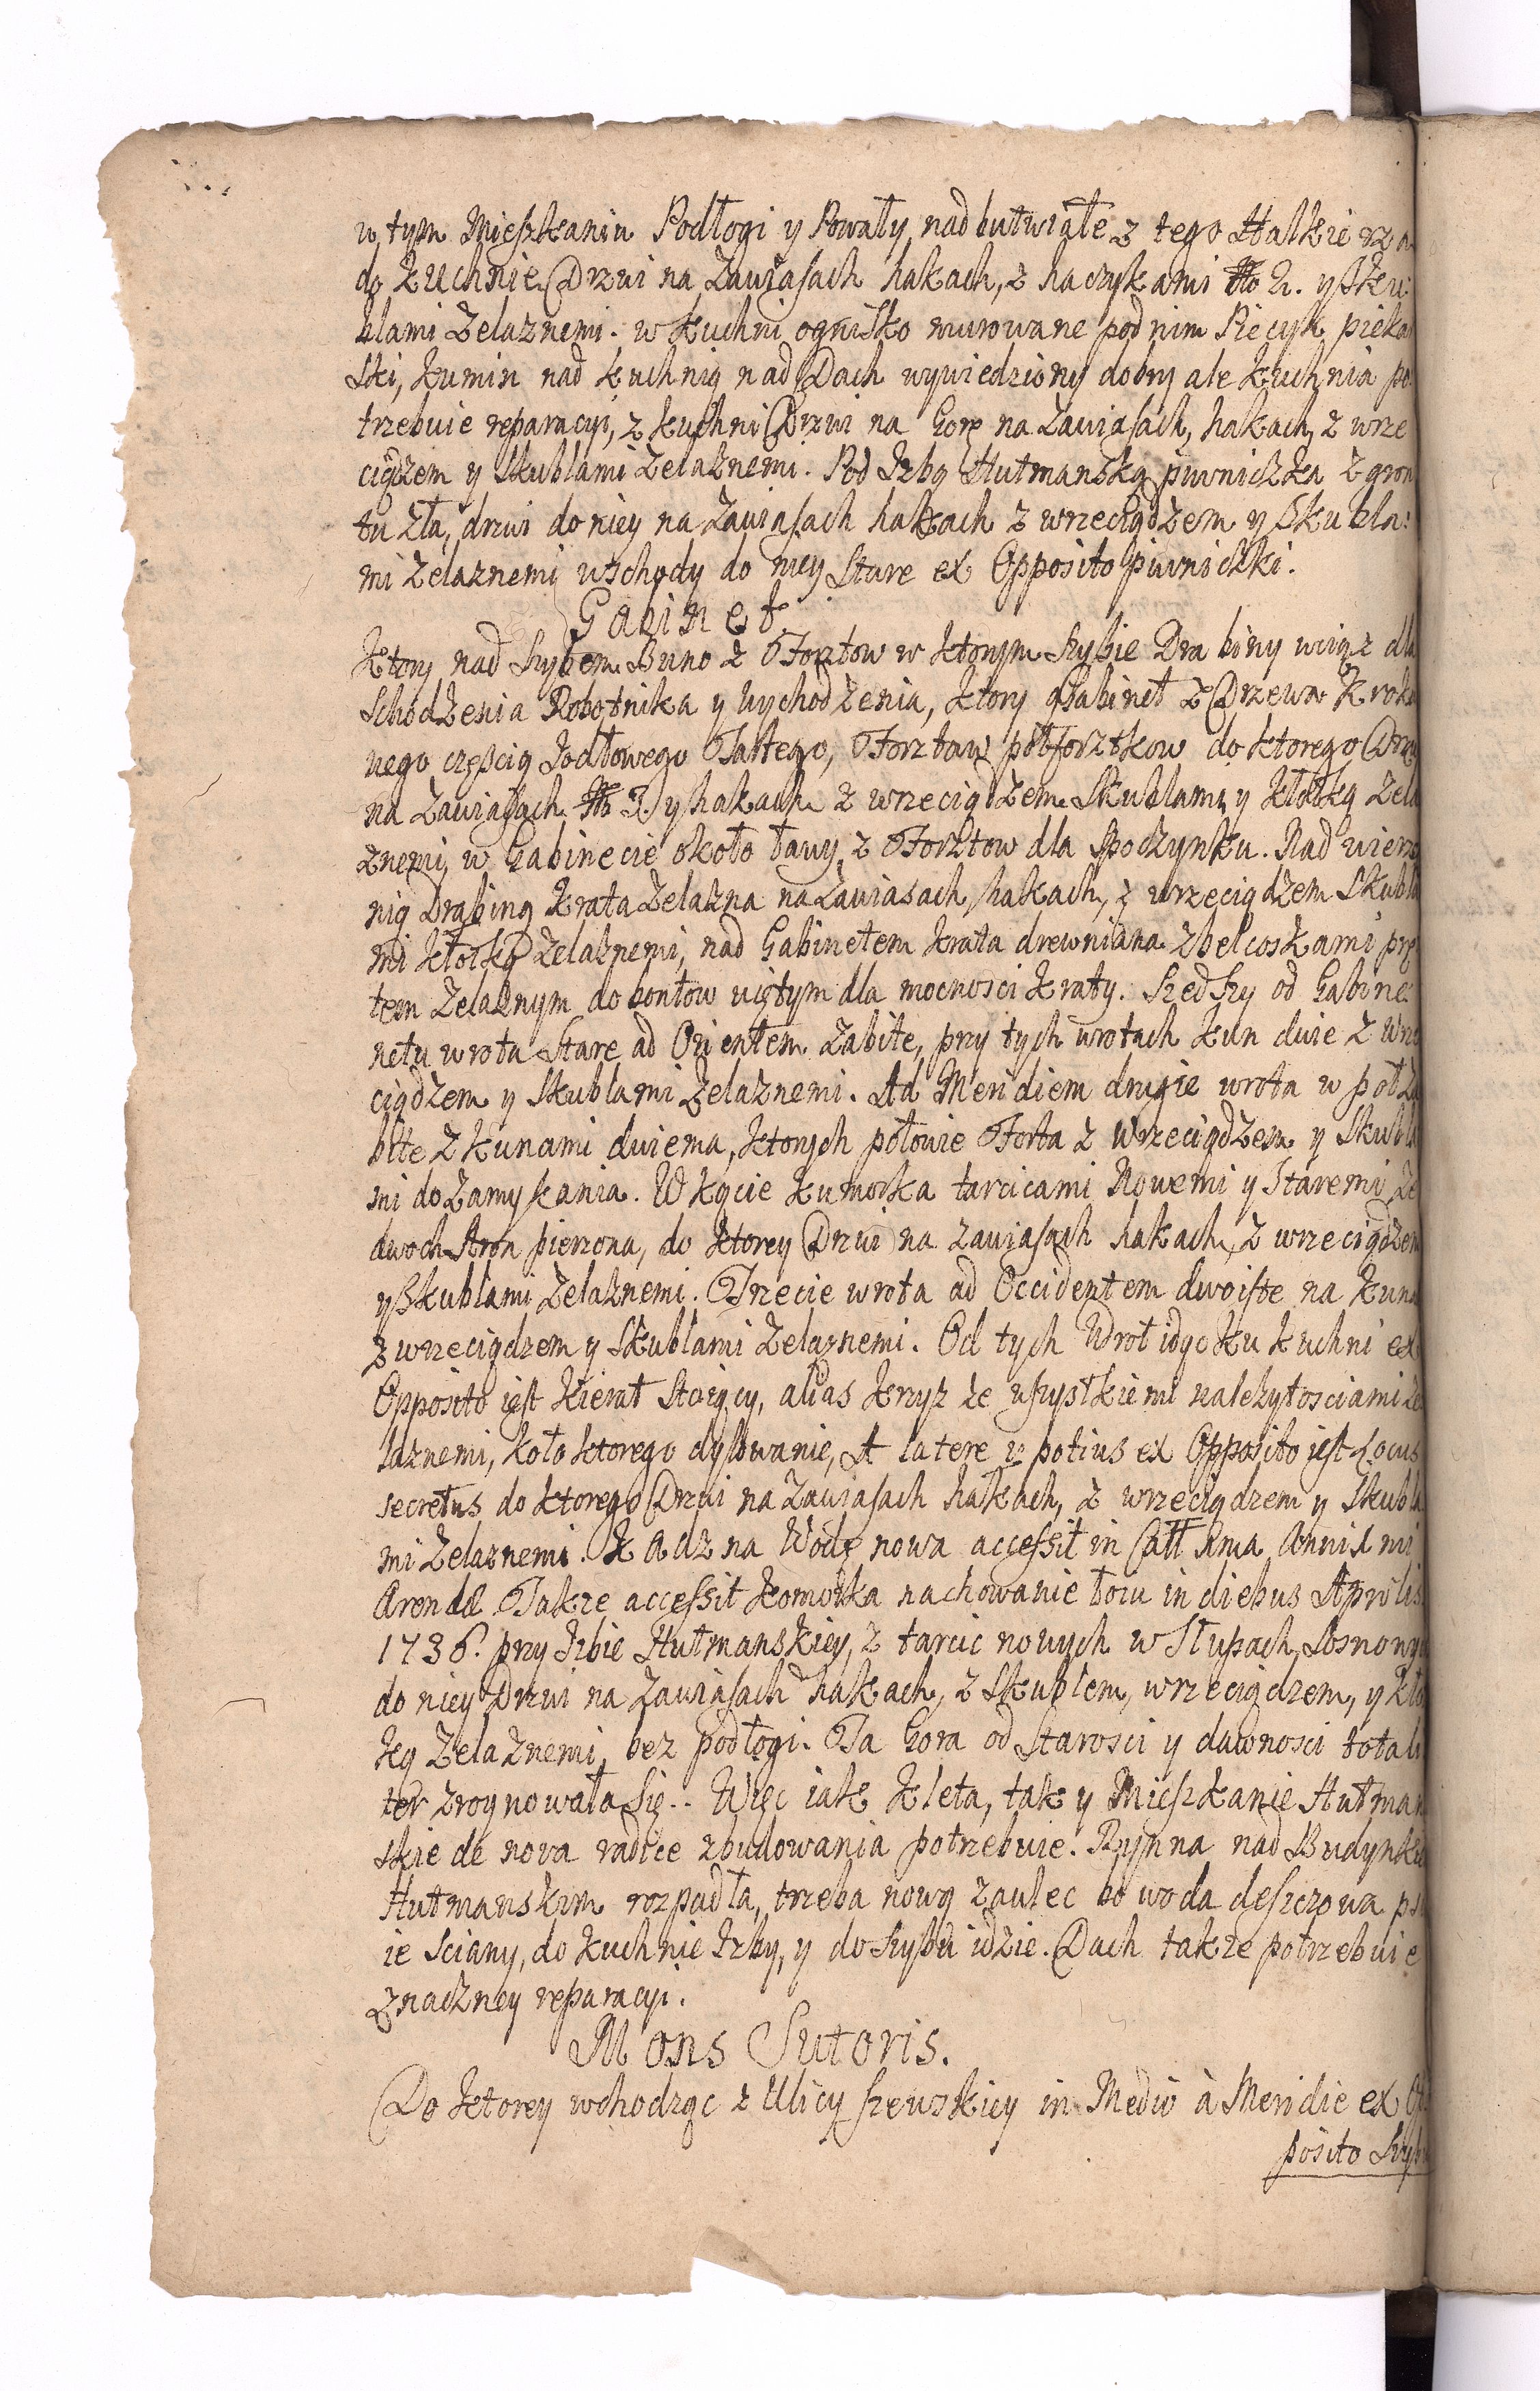 w tym Mieszkaniu Podłogi y Powały nadbutwiałe z tego Halkierza
do Kuchnie Drzwi na Zawiasach hakach, z haczykami No 2. y sku
blami Zelaznemi. w Kuchni ognisko murowane pod nim Piecyk pieka
ski, Kumin nad kuchnią nad Dach wywiedziony dobry ale kuchnia po
trzebuie reparacyi, z kuchni Drzwi na Gorę na Zawiasach, hakach, z wrze
ciądzem y Skublami Zelaznemi. Pod Izbą Hutmanską piwniczka z gron
tu zła, drzwi do niey na Zawiasach hakach z wrzeciądzem y Skubla:
mi Zelaznemi wschody do niey Stare ex Opposito piwniczki.
Gabinet
Ktory nad Szybem Buno z Forztow w ktorym Szybie Drabiny wciąż dla
Schodzenia Robotnika y wychodzenia, ktory Gabinet z Drzewa Krokw
nego częscią Jodłowego Tartego, Forztow półforztkow do ktorego Drzwi
na Zawiasach No 3. y hakach z wrzeciądzem Skublami y Kłotką Zela
znemi, w Gabinecie około ławy z Forztow dla Spoczynku. Nad wierz
nią Drabiną Krata Zelazna na Zawiasach, hakach, z wrzeciądzem Skubla
mi kłotką Zelaznemi, nad Gabinetem krata drewniana z belcoskami prę
tem Zelaznym do bontow uiętym dla mocnosci Kraty. Szedszy od Gabine
netu wrota Stare ad Orientem Zabite, przy tych wrotach kun dwie z wrze
ciądzem y Skublami Zelaznemi. Ad Meridiem drugie wrota w poł Za
bite z kunami dwiema, ktorych połowie Forta z Wrzeciądzem y Skubla
mi do Zamykania. W kącie Kumorka tarcicami Nowemi y Staremi Ze
dwoch Stron pierzona, do ktorey Drzwi na zawiasach hakach, z wrzeciądzem
y Skublami Zelaznemi. Trzecie wrota ad Occidentem dwoiste na Kuna
z wrzeciądzem y Skublami Zelaznemi. Od tych Wrot idąc ku kuchni ex
Opposito iest Kierat Stoiący, alias Krzyz ze wszystkiemi nalezytosciami Ze
laznemi, koło ktorego dylowanie, A latere v: potius ex Opposito iest Locus
secretus do ktorego Drzwi na Zawiasach hakach, z wrzeciądzem y Skubla
mi Zelaznemi. Kadz na Wodę nowa accessit in
Arendæ Takze accessit komorka na chowanie łoiu in diebus Aprilis
1736. przy Izbie Hutmanskiey, z tarcic nowych w Słupach Sosnowych
do niey Drzwi na Zawiasach hakach, z Skublem, wrzeciądzem, y kło
tką Zelaznemi, bez podłogi. Ta Gora od Starosci y dawnosci totali
ter zroynowała się. Więc iak Kleta, tak y Mieszkanie Hutman
skie de nova radice zbudowania potrzebuie. Rynna nad Budynkie
Hutmanskim rozpadła, trzeba nową zawlec bo woda deszczowa psu
ie Sciany, do kuchnie Izby, y do Szybu idzie. Dach takze potrzebuie
znaczney reparacyi.
Mons Sutoris.
Do ktorey wchodząc z Ulicy Szewskiey in Medio à Meridie ex Op
posito Szybu